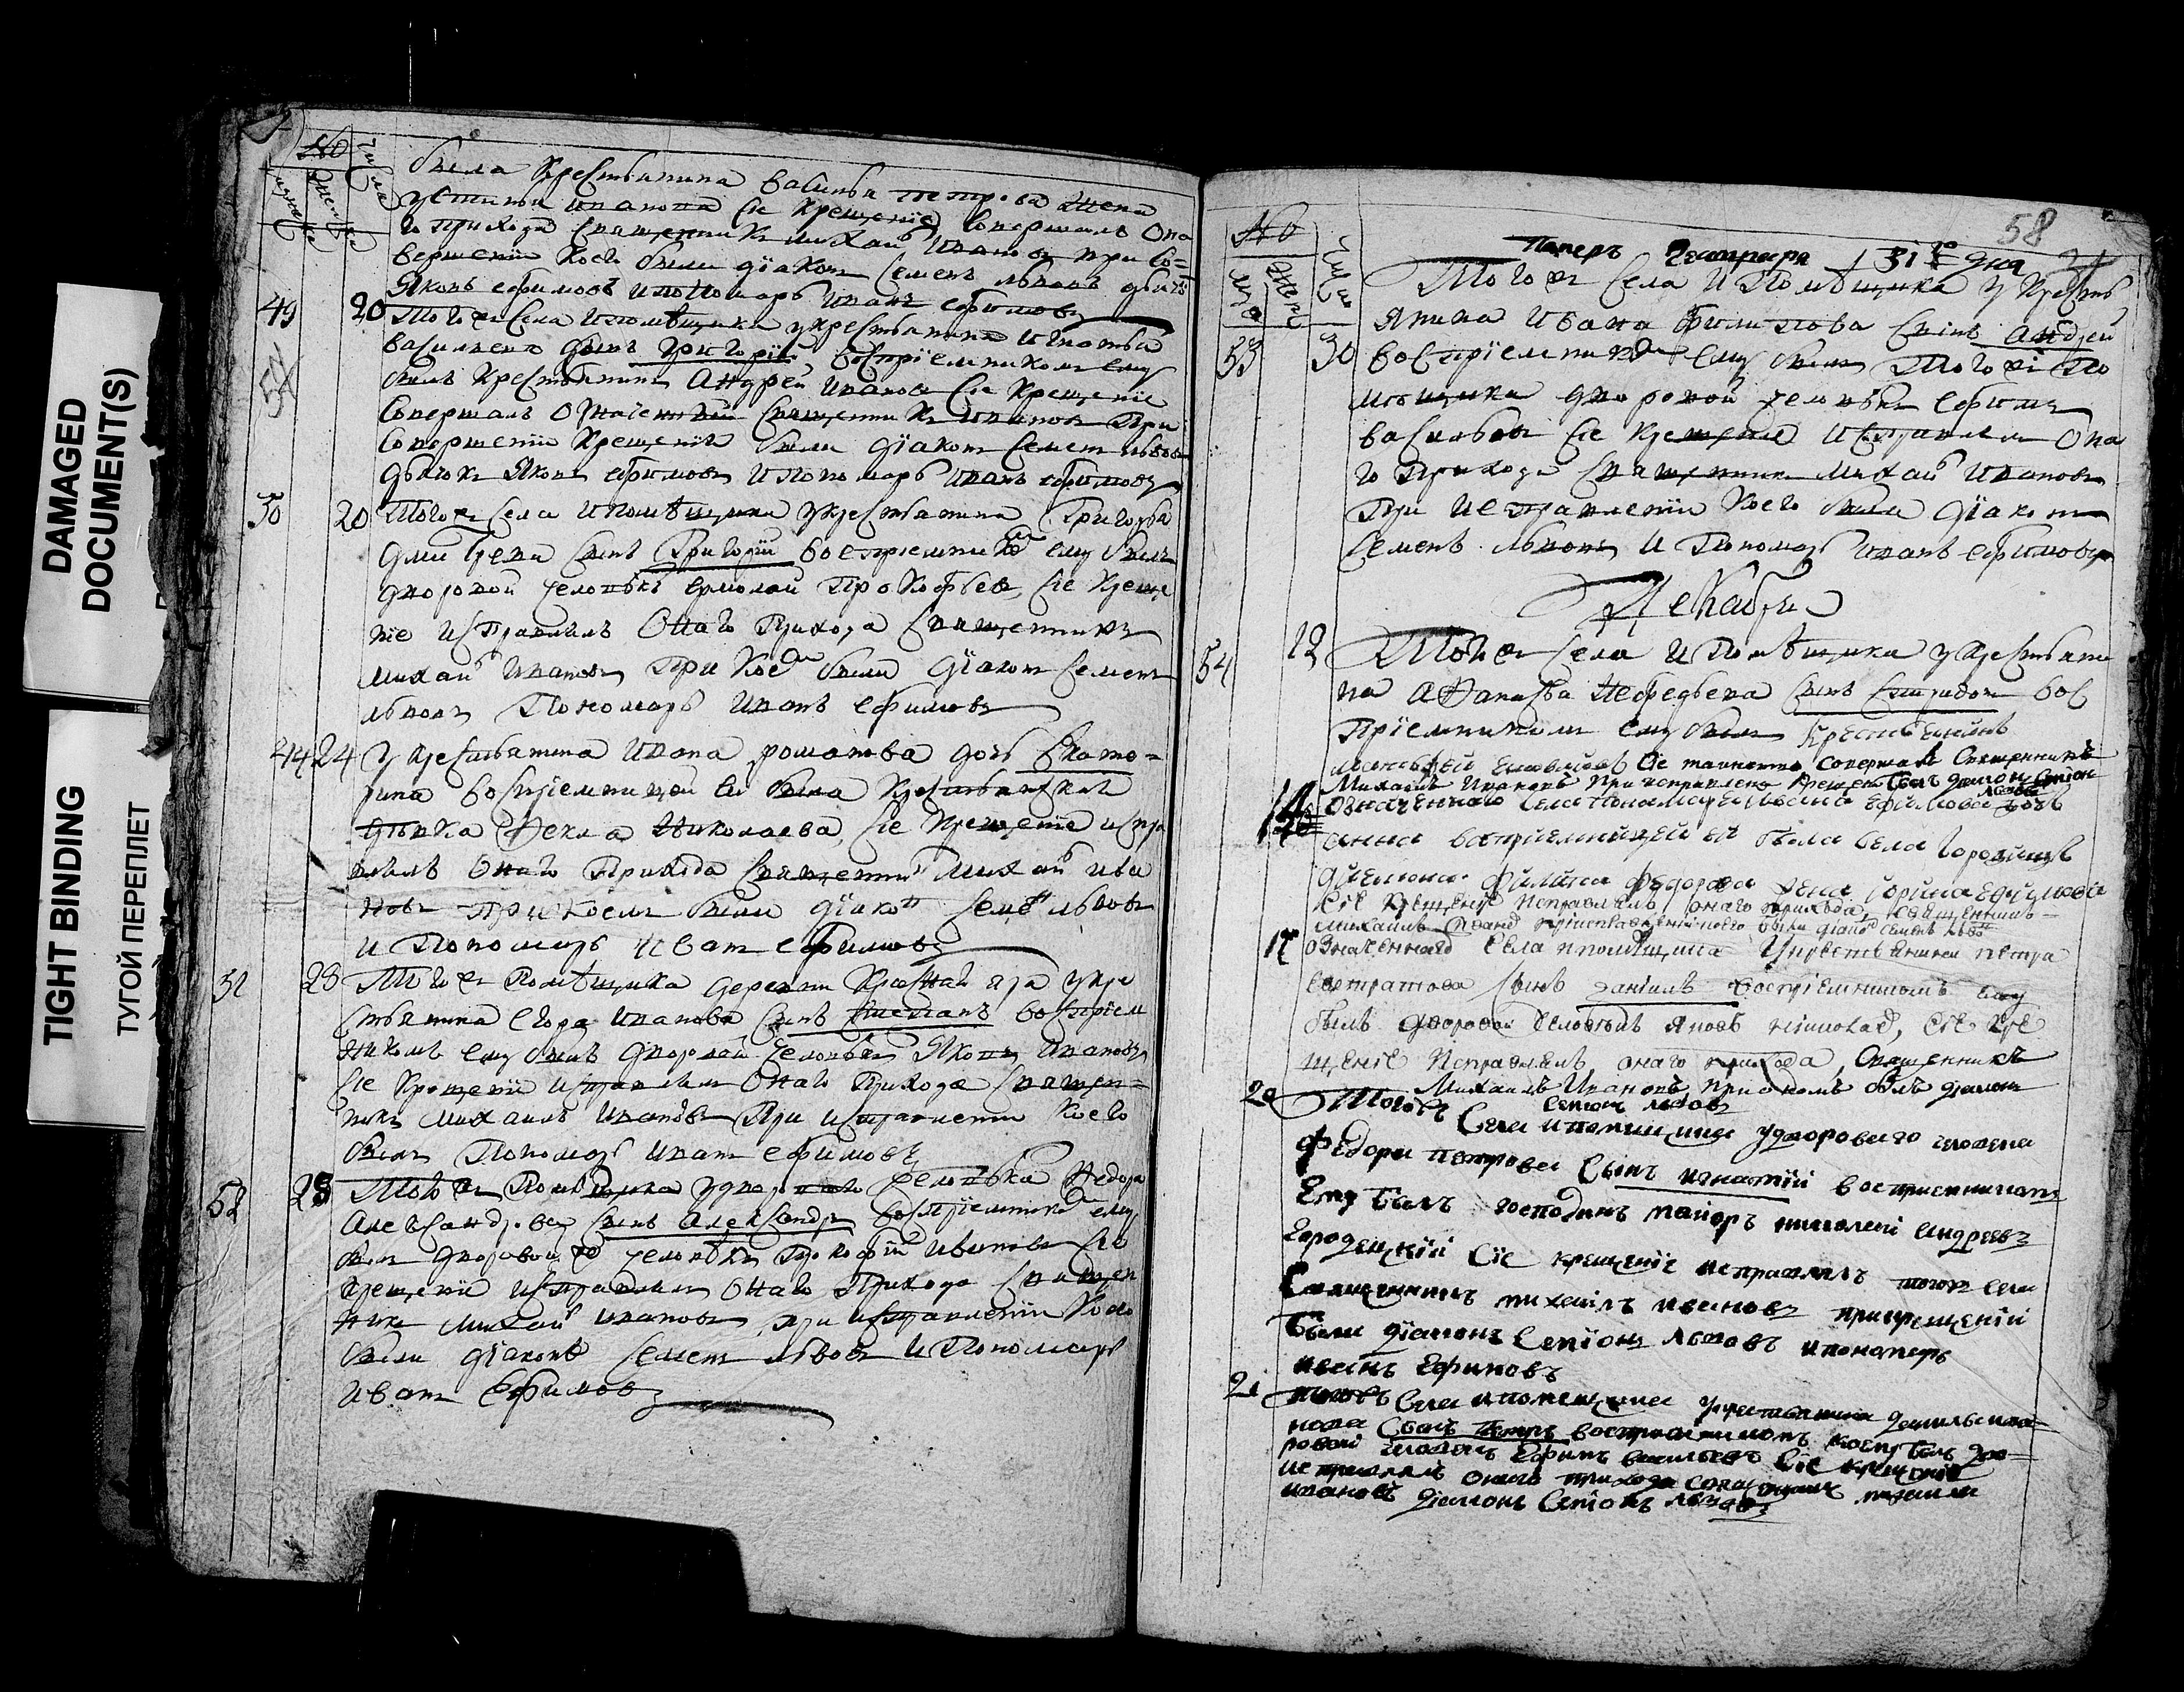 DAMAGED
DOCUMENT(S)
TIGHT BINDING
ТУГОЙ ПЕРЕПЛЕТ
№
числа
была крестьянина василья петрова жена
устинья иванова сіе крещеніе совершалъ она
го прихода священникъ михаи иванов при со=
вершеніи коего были діаконъ семенъ львовъ дьячекъ
Яковъ ефимовъ и пономарь иванъ ефимовъ
49 20 Того ж села и помѣщика у крестьянина игнатья
васильева сынъ григорій воспріемникомъ ему
былъ крестьянинъ Андрей ивановъ сіе крещеніе
совершалъ священникъ ивановъ При
совершеніи крещенія были діаконъ семенъ львовъ
дьячекъ Яковъ ефимовъ и пономарь иванъ ефимовъ
50 20 Того ж села и помѣщика у крестьянина Григорья
дмитрева сынъ Григорій воспріемнико ему былъ
дворовой человѣкъ ермолай Прокофьевъ, сіе креще
ніе исправлялъ Онаго Прихода священникъ
михаи ивановъ При кое были діаконъ семенъ
львовъ Пономарь Иванъ ефимовъ
24 У крестьянина ивана дочь екате=
рина воспріемницей ей была крестьянская
дѣвка Фекла Николаева, сіе крещеніе испра
влялъ Онаго Прихода священни Михаи ива
новъ при коемъ были діако семе львовъ
и Пономарь Иванъ ефимовъ
23 Того ж Помѣщика деревни Красная яра у кре
стьянина егора иванова сынъ степанъ воспріем
никомъ ему былъ дворовой человѣкъ Яковъ ивановъ
сіе крещеніе исправлялъ Онаго Прихода священ=
никъ михаилъ ивановъ При исправленіи коего
былъ Пономарь иванъ ефимовъ
52 23 Того ж Помѣщика у двороваго человѣка Федора
Александрова сынъ Александръ воспріемнико ему
был дворовой человѣкъ Прокофій ивановъ Сіе
крещеніе исправлялъ Онаго Прихода священ
никъ михаи ивановъ при исправленіи коего
были діаконъ семенъ львовъ и Пономарь
иванъ ефимовъ
58
№
31 дня
53 30 Того ж села и Помѣщика у кресть
янина ивана Филипова сынъ Андрей
воспріемнико ему былъ Того ж По
мѣщика дворовой человѣкъ ефимъ
васильевъ сіе крещеніе исправлялъ Она
го Прихода священникъ михаи ивановъ
При исправленіи коего были діаконъ
семенъ львовъ и Пономарь иванъ ефимовъ
Декабрь
54 Того ж села и Помѣщика у крестьяни
на Афанасья Нефедьева сынъ спиридонъ вос
пріемникомъ ему былъ крестьенинъ
Сіе таинство совершалъ Священникъ
Михаилъ Ивановъ При исправлено крещен былъ диаконъ Семион
львовъ
14 означеннаго села пономаря ивана ефимова дочь
анна воспріемницей ей была села городищъ
диякона Филипа федорова жена ирина ефимова
Сіе крещеніе исправлялъ онаго прихода, священникъ
михаилъ иванов при исправленіи коего были діако семенъ льво
17 означеннаго села и помѣщика у крестьянина петра
сынъ данилъ воспріемникомъ ему
былъ дворовой человѣкъ Яковъ сіе кре
щеніе исправлялъ онаго прихода, священникъ
Михаилъ Ивановъ, при ономъ былъ диакон
Семион львовъ
20 Того ж Села и помещика у дворового человека
Федора петрова Сынъ игнатій восприемникомъ
Ему былъ господинъ маиоръ николай андреевъ
городецкій Сіе крещеніе исправлялъ того ж села
Священникъ михаилъ ивановъ при крещеніи
были діаконъ Семіонъ львовъ и пономарь
иванъ Ефимовъ
21 того ж Села и помещика у крестьянина данилы ива
нова Сынъ Петръ восприемникомъ коему былъ дво=
ровой человекъ Ефимъ васильевъ Сіе крещеніе
исправлялъ онаго прихода священникъ михаилъ
ивановъ діаконъ Семіонъ львовъ